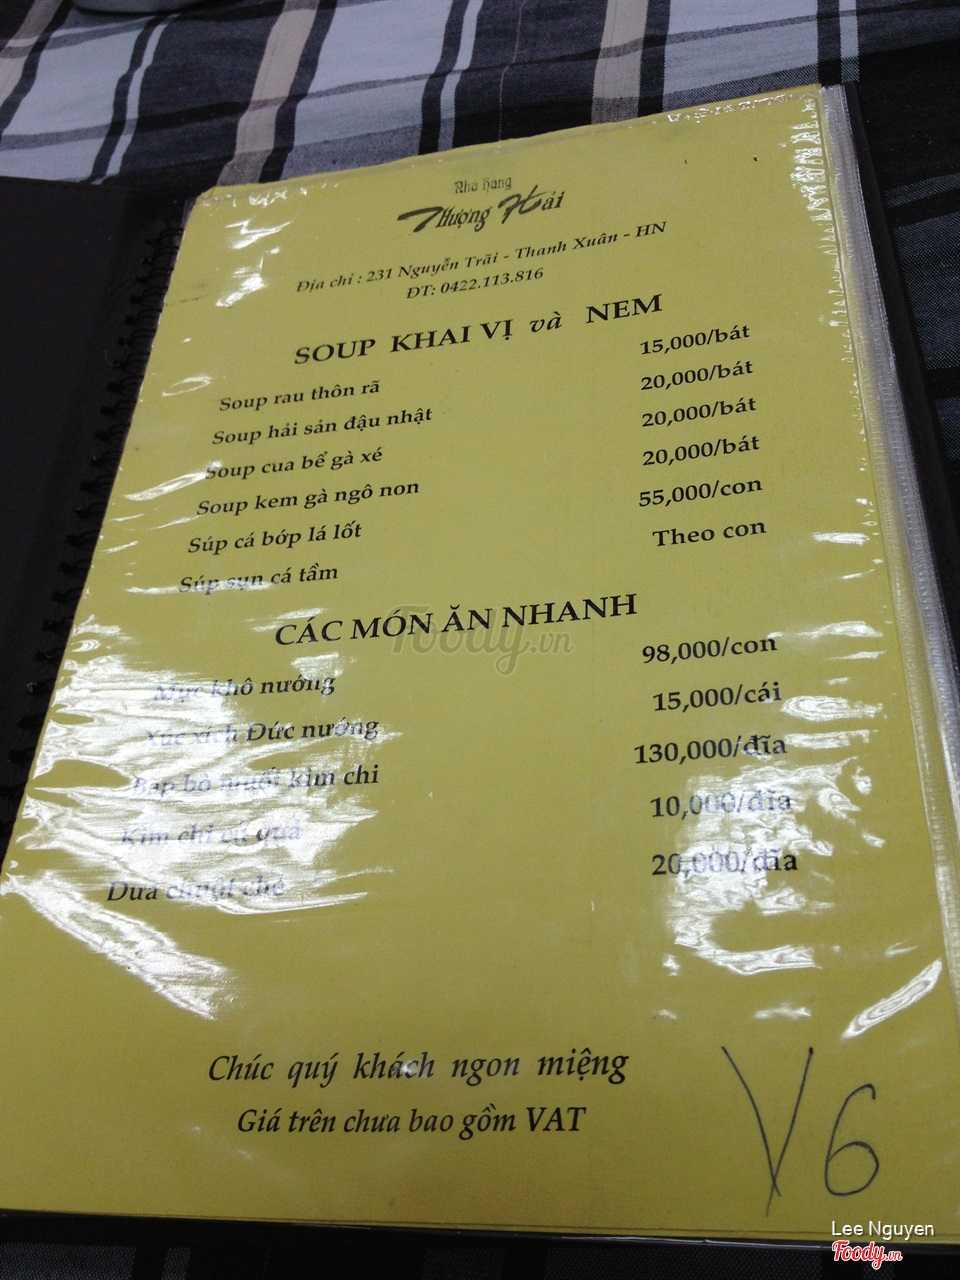 Nhà hàng
Thượng Hải
Địa chỉ : 231 Nguyễn Trãi - Thanh Xuân - HN
ĐT: 0422.113.816
SOUP KHAI VỊ và NEM
Soup rau thôn rã 15,000/bát
Soup hải sản đậu nhật 20,000/bát
Soup cua bể gà xé 20,000/bát
Soup kem gà ngô non 20,000/bát
Súp cá bớp lá lốt 55,000/con
Súp sụn cá tầm Theo con
CÁC MÓN ĂN NHANH
Mực khô nướng 98,000/con
Xúc xích Đức nướng 15,000/cái
Bắp bò muối kim chi 130,000/đĩa
Kim chi củ quả 10,000/đĩa
Dưa chuột chẻ 20,000/đĩa
Chúc quý khách ngon miệng
Giá trên chưa bao gồm VAT
V6
Foody.vn
Lee Nguyen
Foody.vn